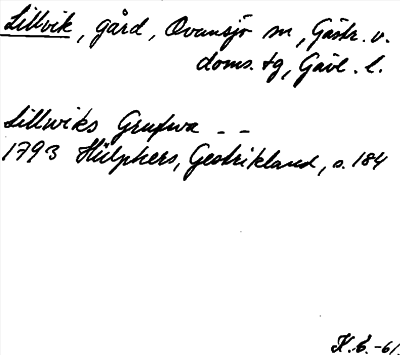 Lillvik, gård, Ovansjö sn, Gästr. v.
doms. tg, Gävl. l.
Lillwiks Grufwa - -
1793 Hülphers, Gestrikland, s. 184
K.E. -61.